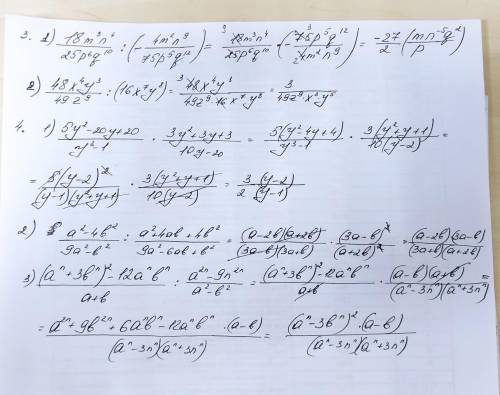 3. 1) 18m³n⁴/25p⁶q¹⁰ : (-4m²n⁹/75p⁵q¹²) = 18m³n⁴/25p⁶q¹⁰ · (-75p⁵q¹²/4m²n⁹) = -27/2 (mn⁻⁵q²/p)
2) 48x⁴y³/49z⁹ : (16x⁷y⁸) = 48x⁴y³/49z⁹·16x⁷y⁸ = 3/49z⁹x³y⁵
4. 1) 5y²-20y+20/y³-1 · 3y²+3y+3/10y-20 = 5(y²-4y+4)/y³-1 · 3(y²+y+1)/10(y-2) =
= 5(y-2)²/(y-1)(y²+y+1) · 3(y²+y+1)/10(y-2) = 3/2 (y-2)/(y-1)
2) a²-4b²/9a²-b² : a²+4ab+4b²/9a²-6ab+b² = (a-2b)(a+2b)/(3a-b)(3a+b) · (3a-b)²/(a+2b)² = (a-2b)(3a-b)/(3a+b)(a+2b)
3) (aⁿ+3bⁿ)²-12aⁿbⁿ/a+b : a²ⁿ-9n²ⁿ/a²-b² = (aⁿ+3bⁿ)²-12aⁿbⁿ/a+b · (a-b)(a+b)/(aⁿ-3nⁿ)(aⁿ+3nⁿ) =
= a²ⁿ+9b²ⁿ+6aⁿbⁿ-12aⁿbⁿ·(a-b)/(aⁿ-3nⁿ)(aⁿ+3nⁿ) = (aⁿ-3bⁿ)²·(a-b)/(aⁿ-3nⁿ)(aⁿ+3nⁿ)